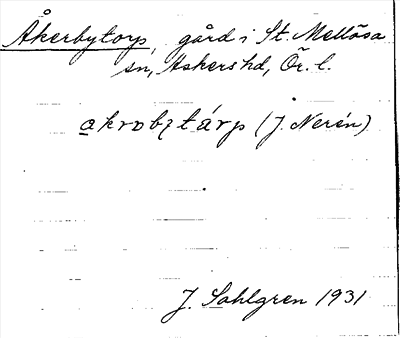 Åkerbytorp, gård i St. Mellösa
sn, Askers hd, Ör. l.
(J. Nerén)
J. Sahlgren 1931